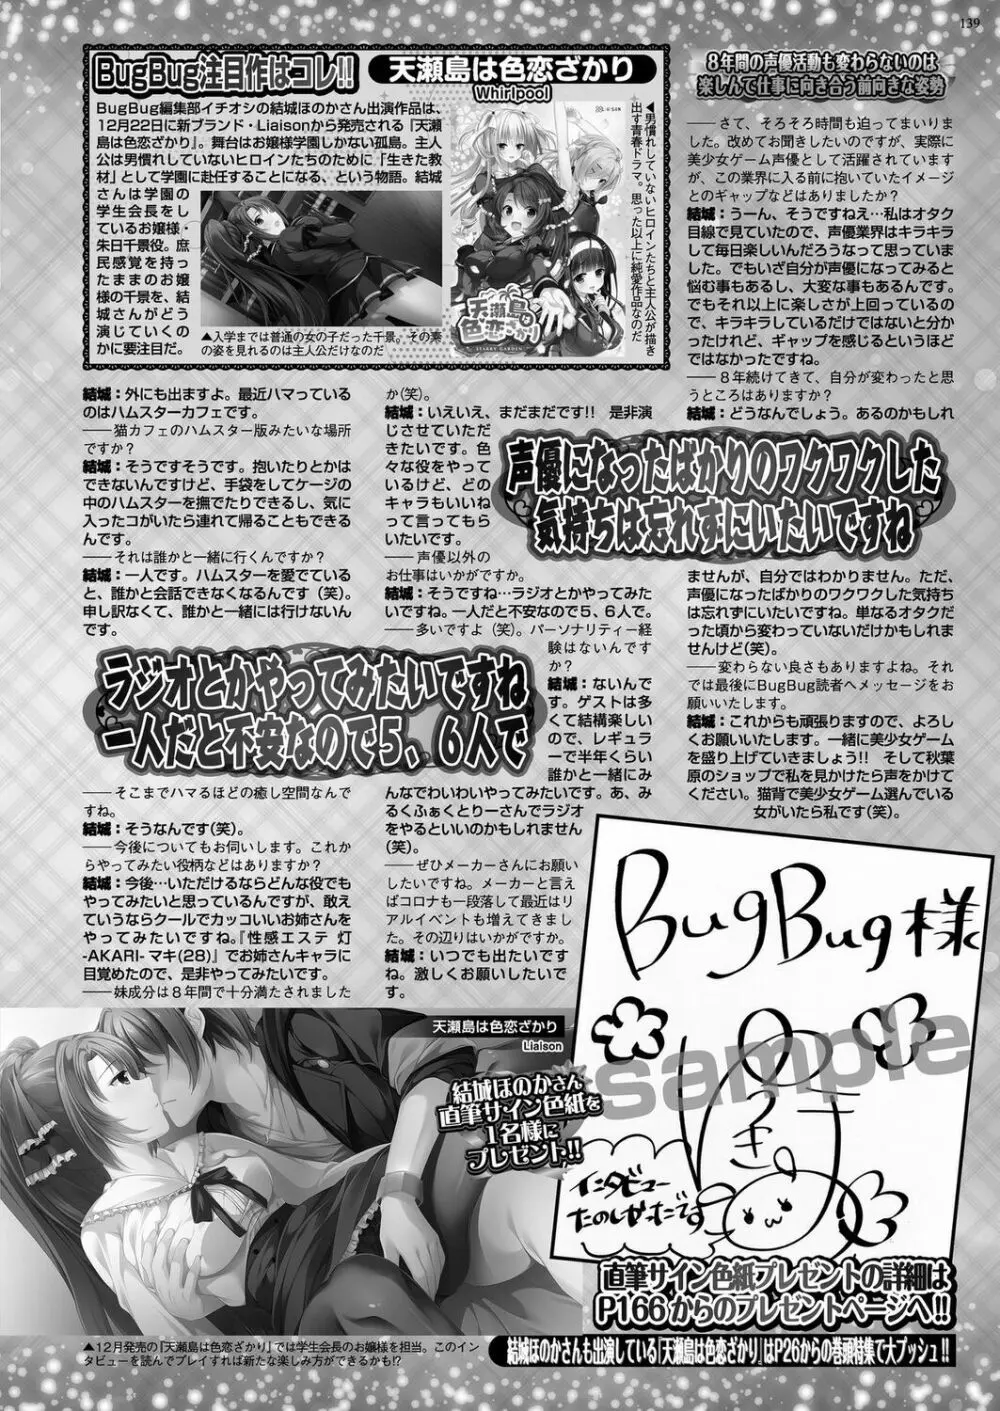 139
BugBug注目作はコレ!!
天瀬島は色恋ざかり
Whirlpool
BugBug編集部イチオシの結城ほのかさん出演作品は、
12月22日に新ブランド・Liaisonから発売される『天瀬
島は色恋ざかり』。舞台はお嬢様学園しかない孤島。主人
公は男慣れしていないヒロインたちのために「生きた教
材」として学園に赴任することになる、という物語。結城
さんは学園の
学生会長をし
ているお嬢様・
朱日千景役。庶
民感覚を持っ
たままのお嬢
様の千景を、結
城さんがどう
演じていくの
かに要注目だ。
▲入学までは普通の女の子だった千景。その素
の姿を見れるのは主人公だけなのだ
◀男慣れしていないヒロインたちと主人公が描き
出す青春ドラマ。思った以上に純愛作品なのだ
天瀬島は
色恋ざかり
STARRY GARDEN
結城:外にも出ますよ。最近ハマっている
のはハムスターカフェです。
――猫カフェのハムスター版みたいな場所
ですか?
結城:そうですそうです。抱いたりとかは
できないんですけど、手袋をしてケージの
中のハムスターを撫でたりできるし、気に
入ったコがいたら連れて帰ることもできる
んです。
――それは誰かと一緒に行くんですか?
結城:一人です。ハムスターを愛でている
と、誰かと会話できなくなるんです(笑)。
申し訳なくて、誰かと一緒には行けないん
です。
ラジオとかやってみたいですね
一人だと不安なので5、6人で
――そこまでハマるほどの癒し空間なんで
すね。
結城:そうなんです(笑)。
――今後についてもお伺いします。これか
らやってみたい役柄などはありますか?
結城:今後…いただけるならどんな役でも
やってみたいと思っているんですが、敢え
ていうならクールでカッコいいお姉さんを
やってみたいですね。『性感エステ 灯
-AKARI- マキ(28)』でお姉さんキャラに
目覚めたので、是非やってみたいです。
――妹成分は8年間で十分満たされました
か(笑)。
結城:いえいえ、まだまだです!! 是非演
じさせていただ
きたいです。色
々な役をやって
いるけど、どの
キャラもいいね
って言ってもら
いたいです。
――声優以外の
お仕事はいかがですか。
結城:そうですね…ラジオとかやってみた
いですね。一人だと不安なので5、6人で。
――多いですよ(笑)。パーソナリティー経
験はないんです
か?
結城:ないんで
す。ゲストは多
くて結構楽しい
ので、レギュラ
ーで半年くらい
誰かと一緒にみ
んなでわいわいやってみたいです。あ、み
るくふぁくとりーさんでラジオ
をやるといいのかもしれません
(笑)。
――ぜひメーカーさんにお願い
したいですね。メーカーと言え
ばコロナも一段落して最近はリ
アルイベントも増えてきまし
た。その辺りはいかがですか。
結城:いつでも出たいです
ね。激しくお願いしたいで
す。
8年間の声優活動も変わらないのは
楽しんで仕事に向き合う前向きな姿勢
――さて、そろそろ時間も迫ってまいりま
した。改めてお聞きしたいのですが、実際に
美少女ゲーム声優として活躍されています
が、この業界に入る前に抱いていたイメージ
とのギャップなどはありましたか?
結城:うーん、そうですねえ…私はオタク
目線で見ていたので、声優業界はキラキラ
して毎日楽しいんだろうなって思っていま
した。でもいざ自分が声優になってみると
悩む事もあるし、大変な事もあるんです。
でもそれ以上に楽しさが上回っているの
で、キラキラしているだけではないと分か
ったけれど、ギャップを感じるというほど
ではなかったですね。
――8年続けてきて、自分が変わったと思
うところはありますか?
結城:どうなんでしょう。あるのかもしれ
声優になったばかりのワクワクした
気持ちは忘れずにいたいですね
ませんが、自分ではわかりません。ただ、
声優になったばかりのワクワクした気持ち
は忘れずにいたいですね。単なるオタクだ
った頃から変わっていないだけかもしれま
せんけど(笑)。
――変わらない良さもありますよね。それ
では最後にBugBug読者へメッセージをお
願いいたします。
結城:これからも頑張りますので、よろし
くお願いいたします。一緒に美少女ゲーム
を盛り上げていきましょう!! そして秋葉
原のショップで私を見かけたら声をかけて
ください。猫背で美少女ゲーム選んでいる
女がいたら私です(笑)。
天瀬島は色恋ざかり
Liaison
結城ほのかさん
直筆サイン色紙を
1名様に
プレゼント!!
BugBug様
sample
インタビュー
たのしかったです
直筆サイン色紙プレゼントの詳細は
P166からのプレゼントページへ!!
▲12月発売の『天瀬島は色恋ざかり』では学生会長のお嬢様を担当。このイン
タビューを読んでプレイすれば新たな楽しみ方ができるかも!?
結城ほのかさんも出演している『天瀬島は色恋ざかり』はP26からの巻頭特集で大プッシュ!!